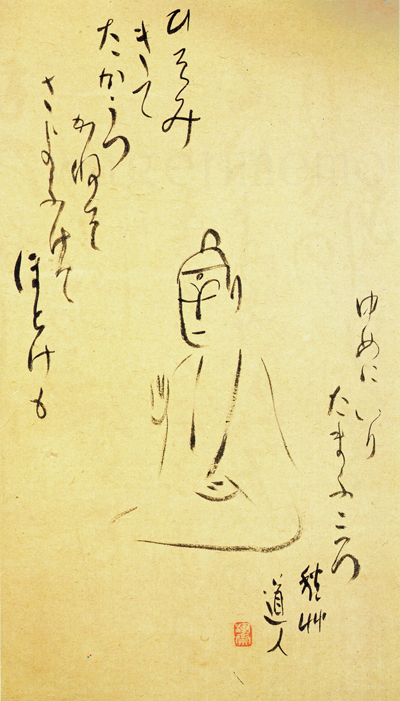 ひそみ
きて
たかうつ
かねそ
さよふけて
ほとけも
ゆめにいり
たまふころ
秋艸
道人